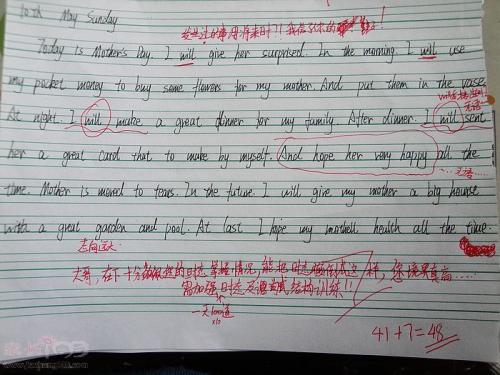 10th May Sunday
发生过的事用将来时?!我信了你的!
Today is Mother's Day. I will give her surprised. In the morning I will use
my pocket money to buy some flowers for my mother. And put them in the vase.
At night. I will make a great dinner for my family. After dinner. I will sent
无语
her a great card that to make by myself. And hope her very happy all the
无语
time. Mother is moved to tears. In the future. I will give my mother a big hourse
with a great garden and pool. At last I hope my mothell health all the time.
走向远大
大哥,在下十分的时态掌握情况,能把时态倾倒成这样,您境界真高......
需加强时态及语言式结构训练!!
一天100道
41+7=48